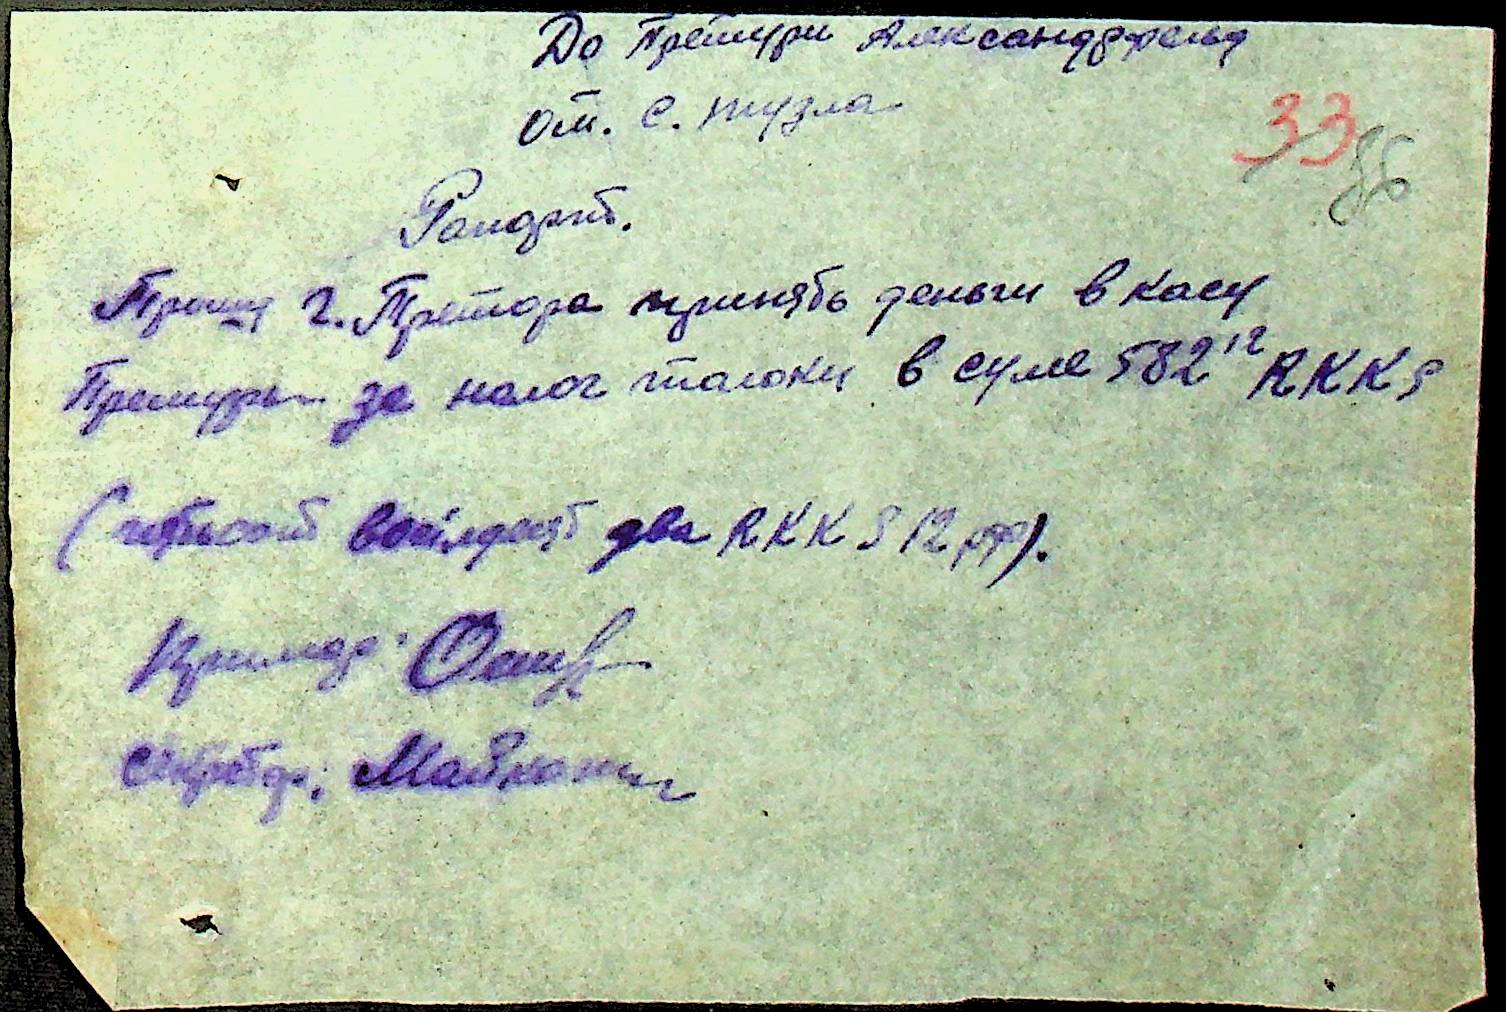 До Претури Александрфельд
от. с. тузла
33
86
Рапорт.
Прошу г. Претора принять деньги в касу
Претуры за налог талоны в суме 582 12 RKKS
(пятьсот восимдесят два RKKS 12 рф).
Примар: Осип
Секретар: